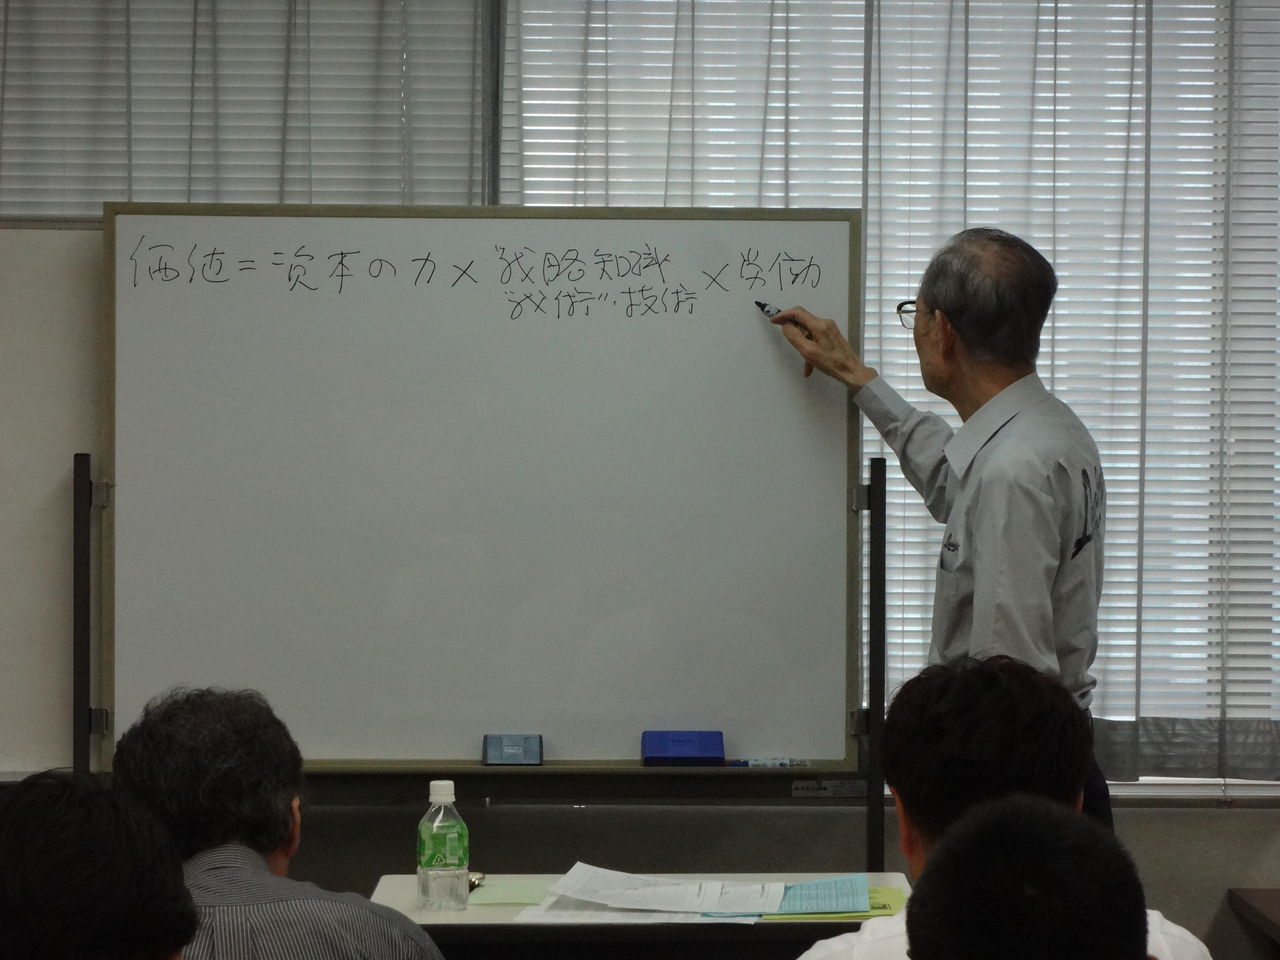 価値=資本の力×戦略知識×労働
"戦術"・技術